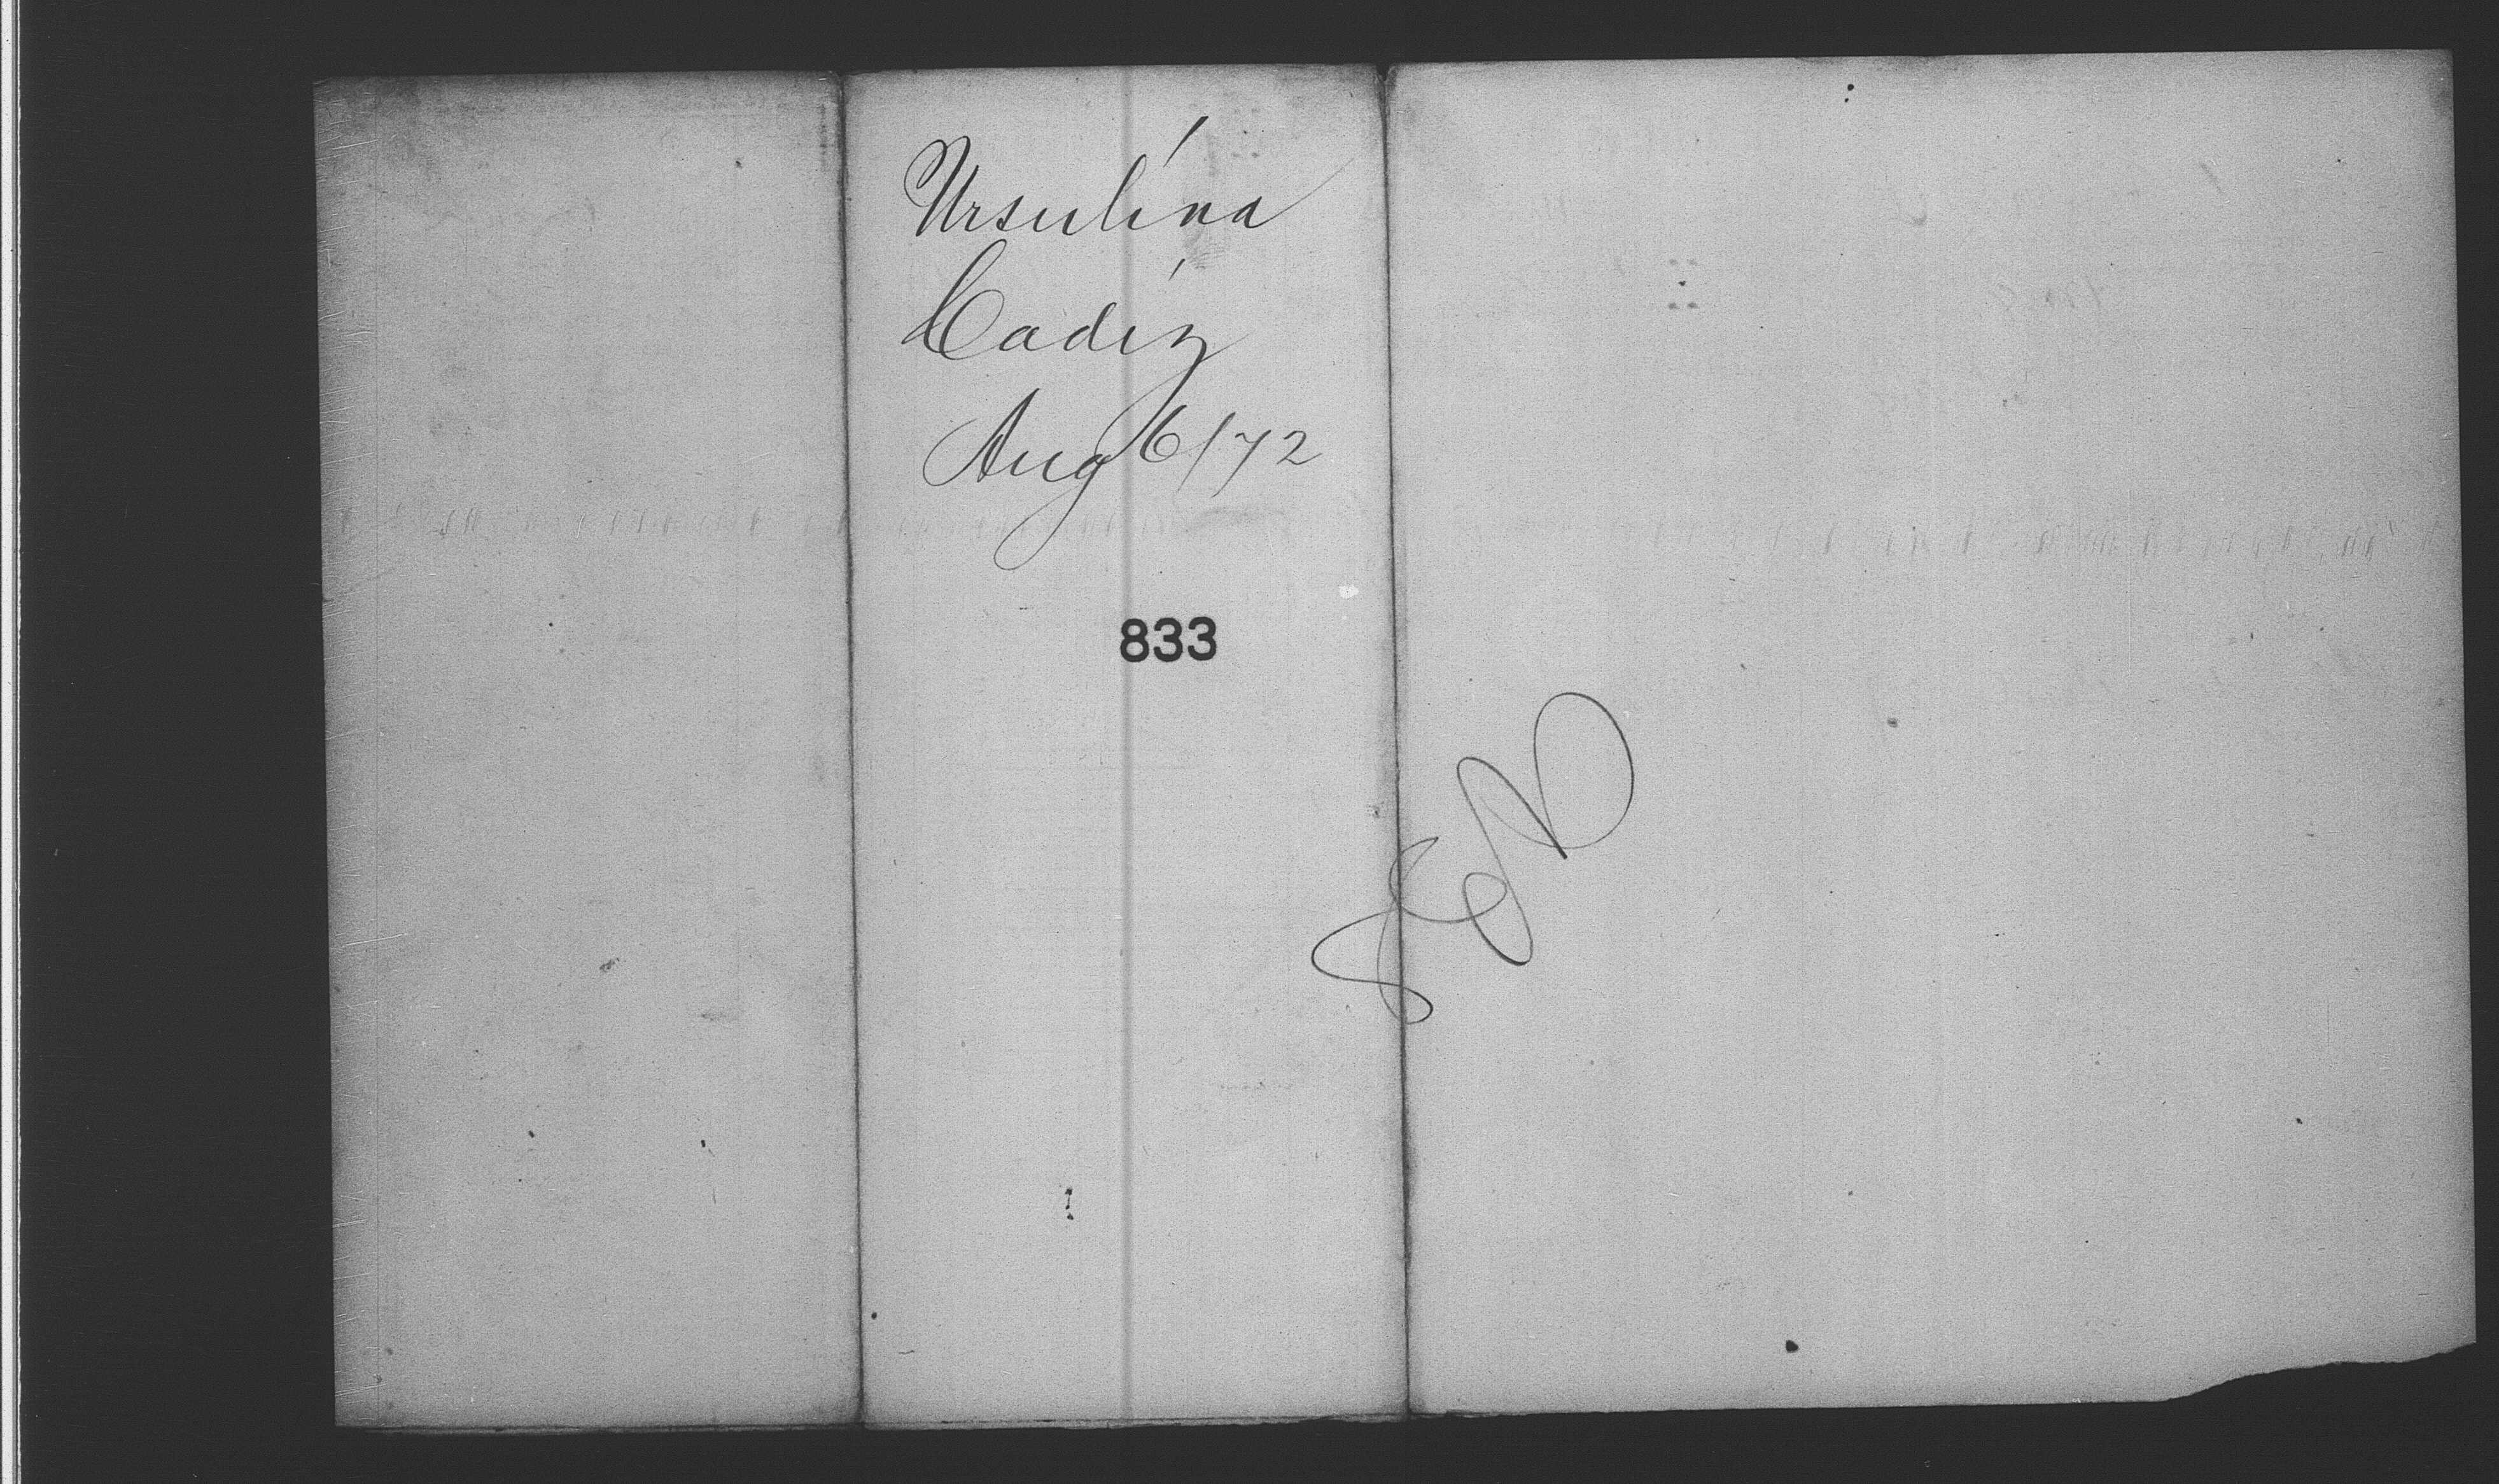 Ursulina
Cadiz
Aug 6/72
833